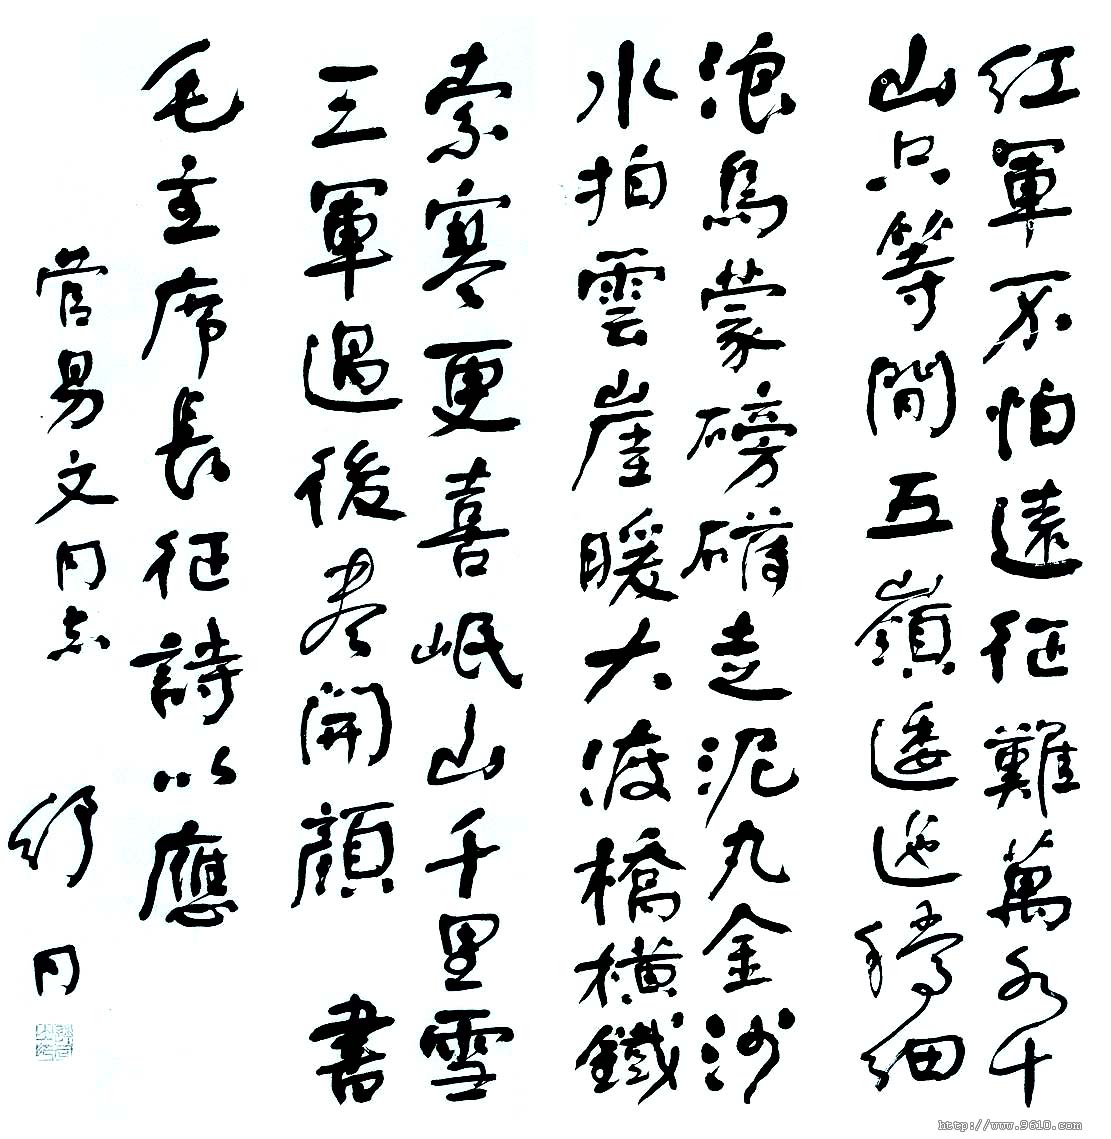 紅軍不怕遠征難萬水千
山只等間五嶺逶迤騰細
浪烏蒙磅礴走泥丸金沙
水拍雲崖暖大渡橋橫鐵
索寒更喜岷山千里雪
三軍過後盡開顏 書
毛主席長征詩以應
菅易文同志 舒同
http://www.9610.com